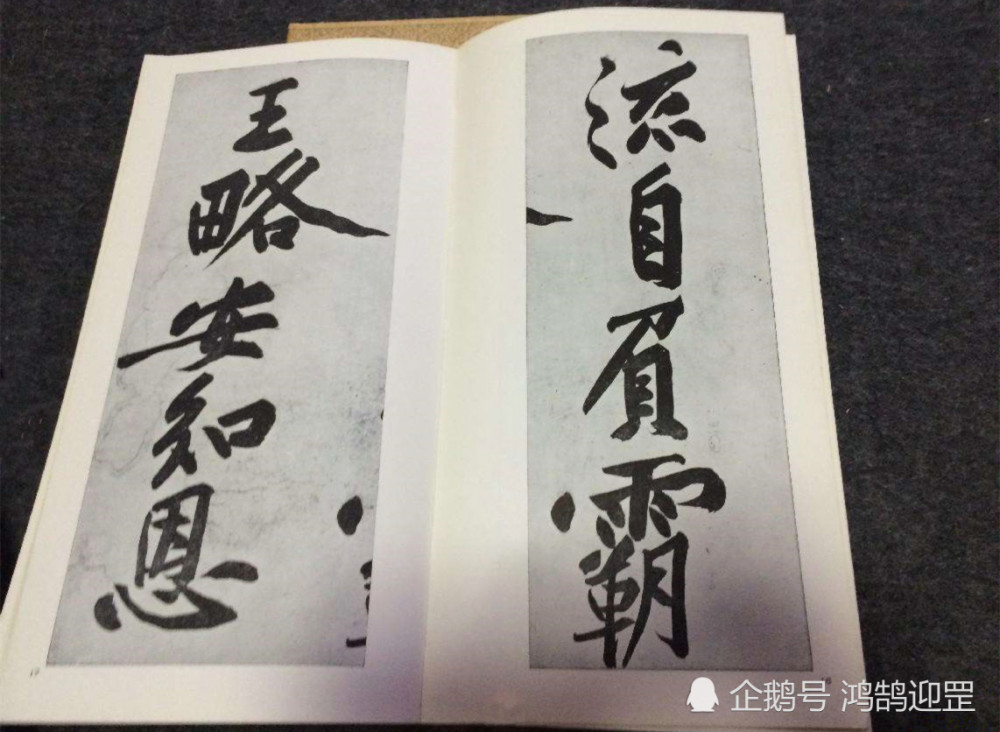 流自負霸
王略安知恩
企鹅号 鸿鹄迎罡